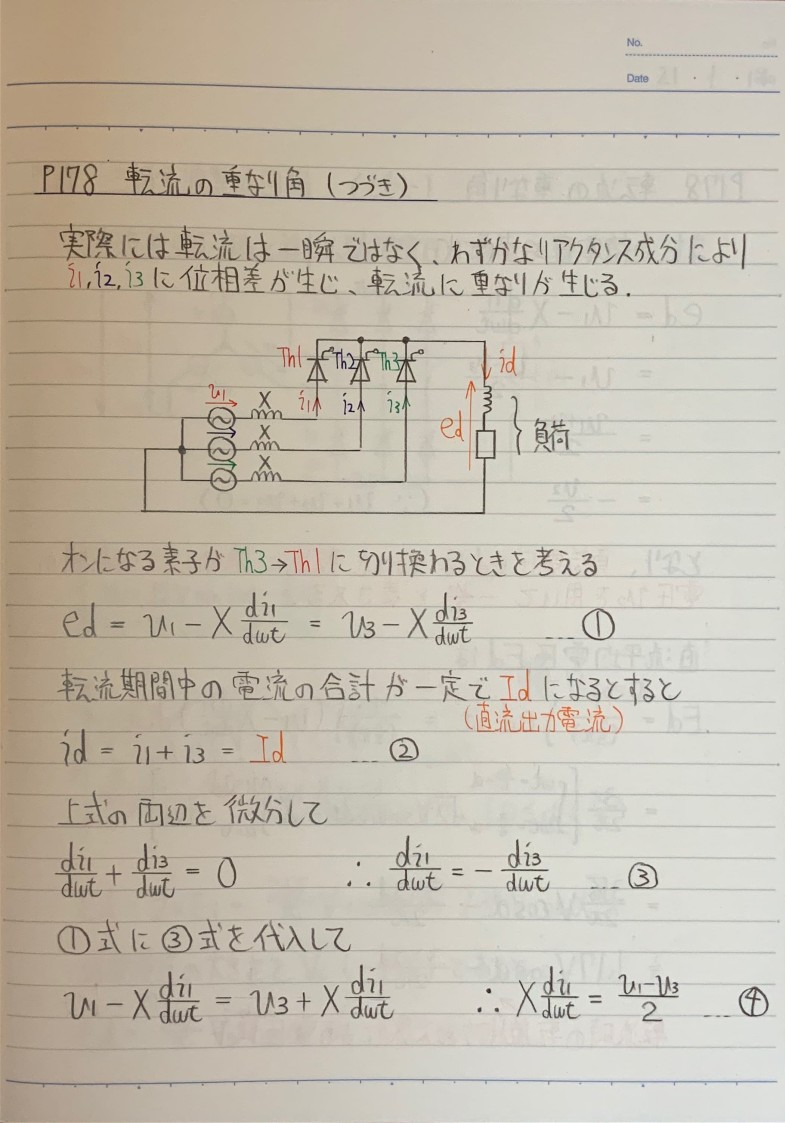 No.
Date
P178 転流の重なり角(つづき)
実際には転流は一瞬ではなく、わずかなリアクタンス成分により
i1, i2, i3に位相差が生じ、転流に重なりが生じる.
Th1 Th2 Th3 id
v1 X i1 i2 i3 ed 負荷
X
X
オンになる素子がTh3→Th1に切り換わるときを考える
ed = v1 - X di1/dωt = v3 - X di3/dωt ...①
転流期間中の電流の合計が一定でIdになるとすると
(直流出力電流)
id = i1 + i3 = Id ...②
上式の両辺を微分して
di1/dωt + di3/dωt = 0 ∴ di1/dωt = - di3/dωt ...③
①式に③式を代入して
v1 - X di1/dωt = v3 + X di1/dωt ∴ X di1/dωt = v1-v3/2 ...④